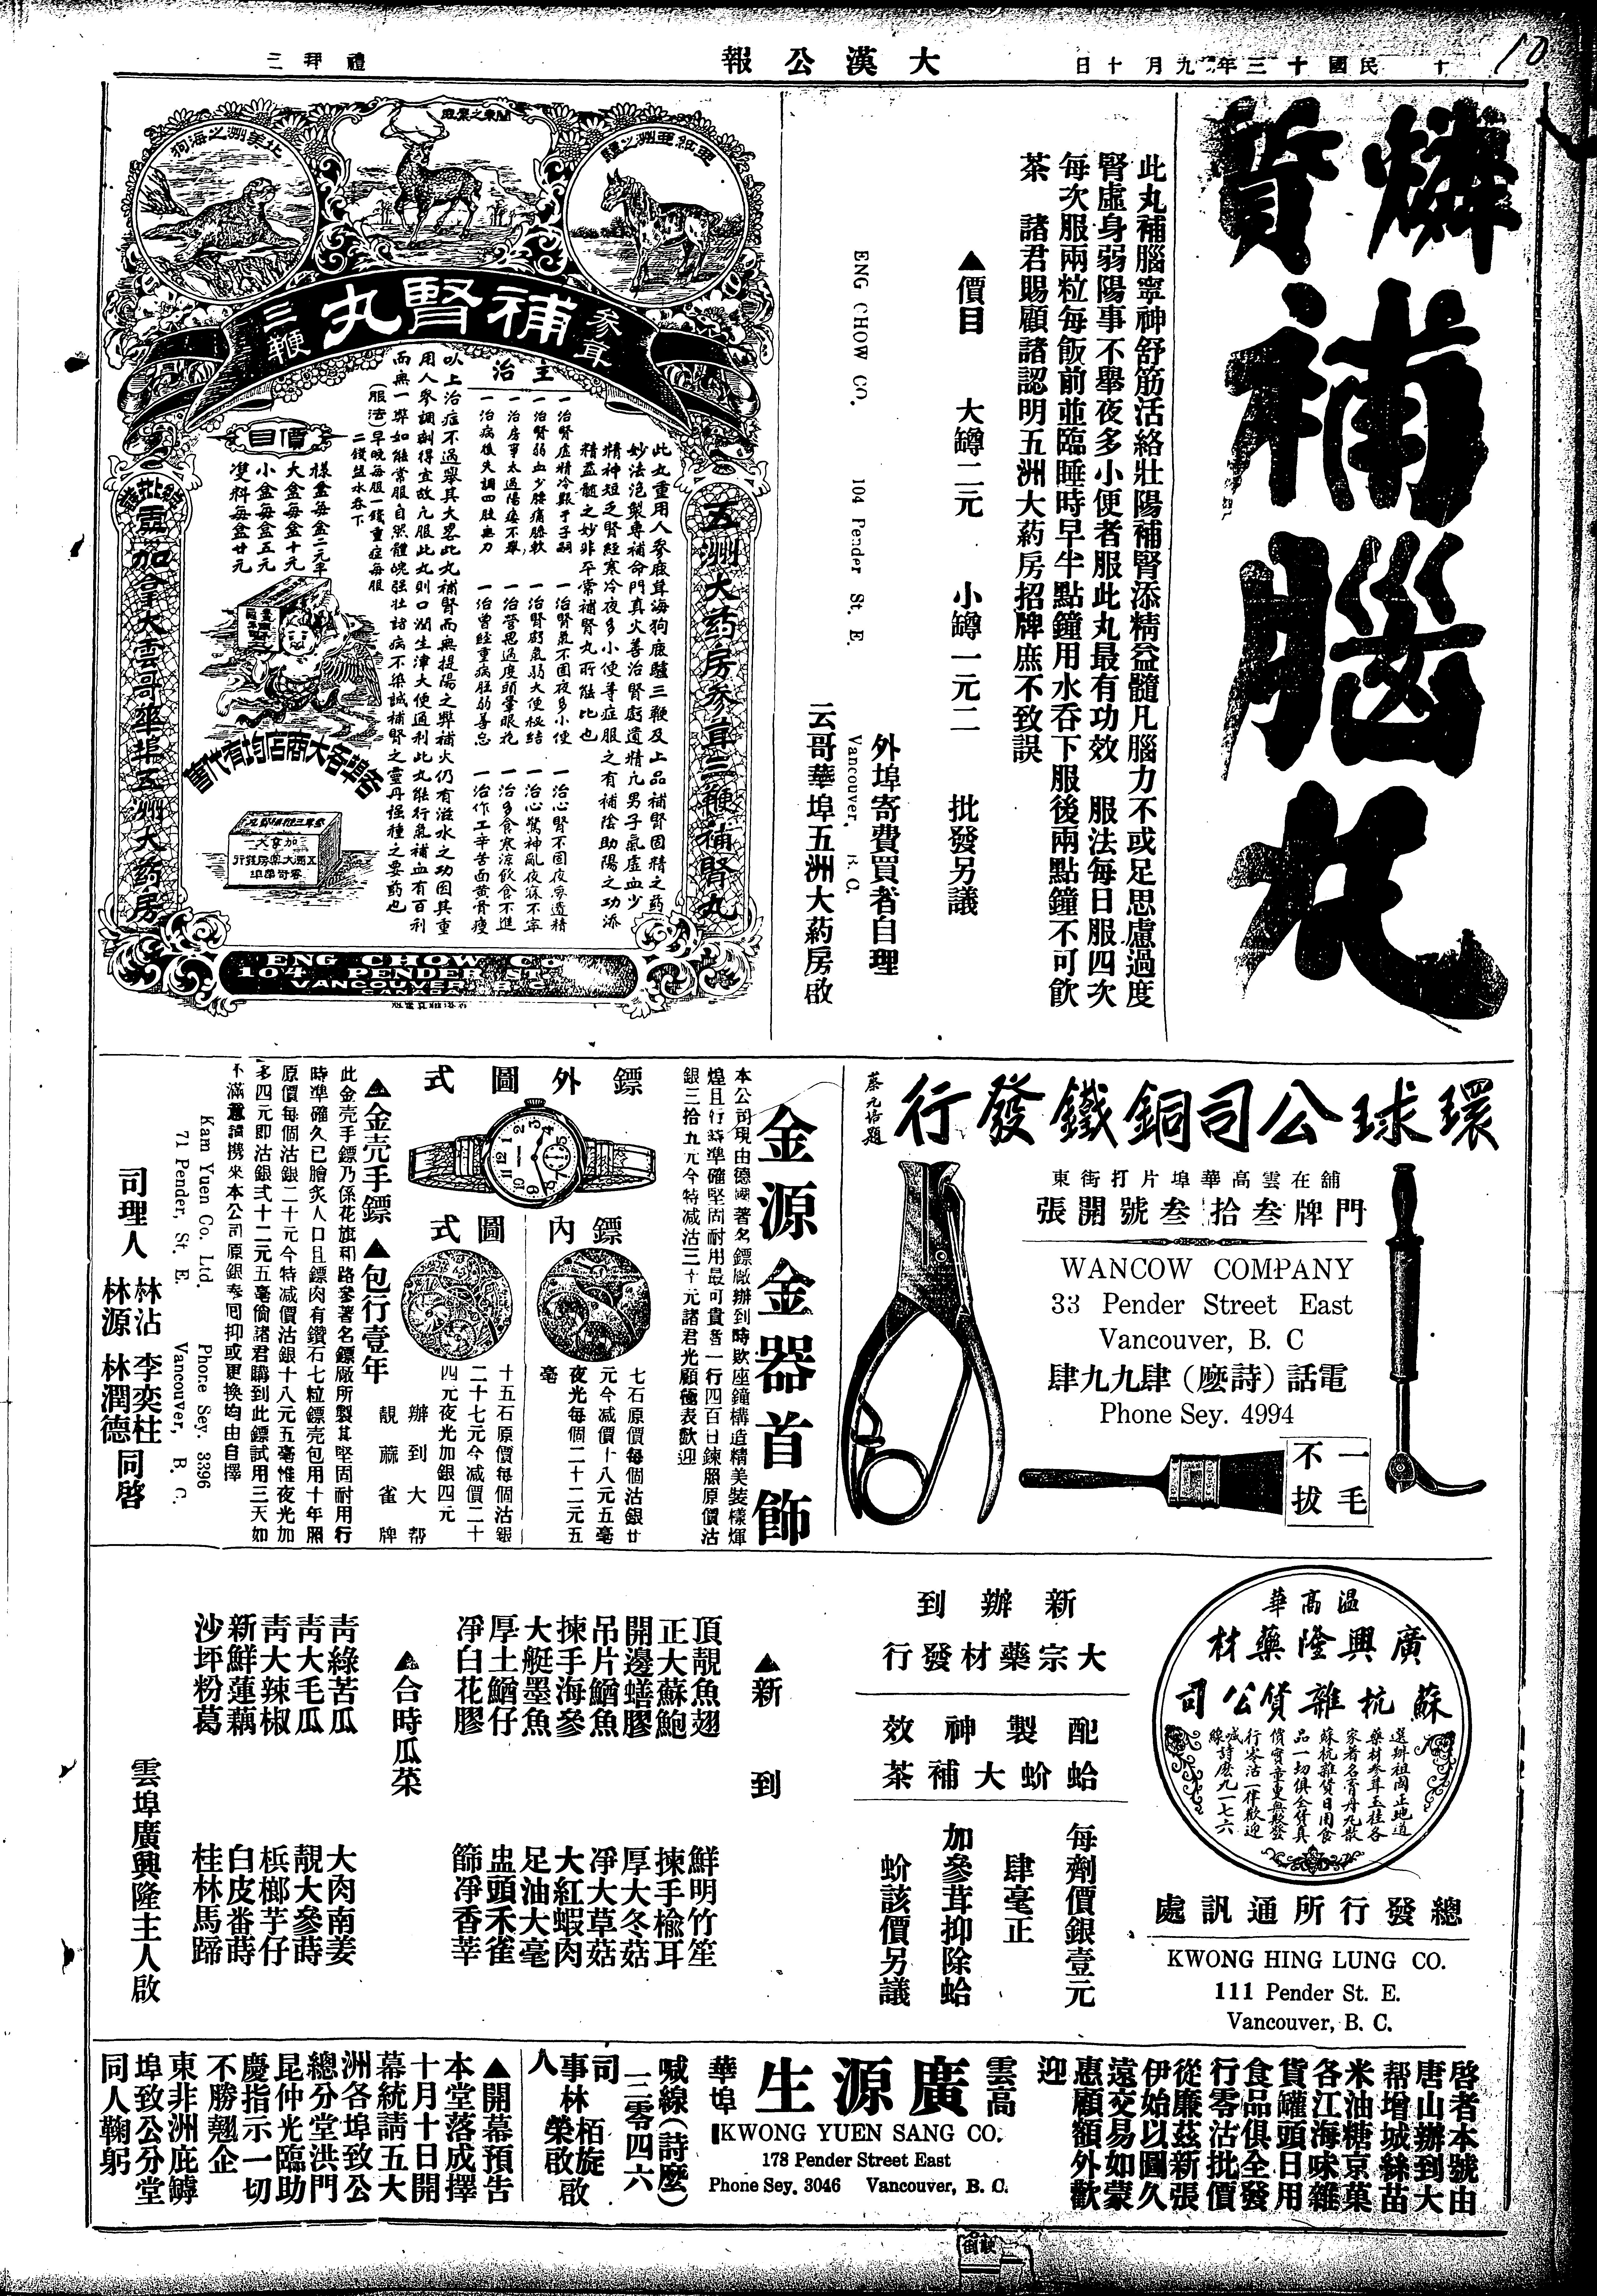 十 民國十三年九月十日
大漢公報
禮拜三
10
燐質
補
腦
丸
此丸補腦寧神舒筋活絡壯陽補腎添精益髓凡腦力不或足思慮過度
腎虛身弱陽事不舉夜多小便者服此丸最有功效 服法每日服四次
每次服兩粒每飯前並臨睡時早半點鐘用水吞下服後兩點鐘不可飲
茶 諸君賜顧諸認明五洲大葯房招牌庶不致誤
▲價目 大罇二元 小罇一元二 批發另議
外埠寄費買者自理
ENG CHOW CO. 104 Pender St. E. Vancouver, B. C.
云哥華埠五洲大葯房啟
北美洲之海狗
補腎丸
三鞭
主治
此丸重用人參鹿茸海狗鹿驢三鞭及上品補腎固精之葯
妙法泡製專補命門真火善治腎虧遺精凡男子氣虛血少
精神短乏腎經寒冷夜多小便等症服之有補陰助陽之功添
精益髓之妙非平常補腎丸所能比也
一治腎虛精冷艱于子嗣 一治腎氣不固夜多小便 一治心腎不固夜夢遺精
一治腎弱血少腰痛膝軟 一治腎虧氣弱大便秘結 一治心驚神亂夜寐不寧
一治房事太過陽痿不舉 一治營思過度頭暈眼花 一治多食寒涼飲食不進
一治病後失調四肢無力 一治曾經重病胆弱善忘 一治作工辛苦面黄骨瘦
以上治症不過舉其大畧此丸補腎而無提陽之弊補火仍有滋水之功因其重
用人參調劑得宜故凡服此丸則口潤生津大便通利此丸能行氣補血有百利
而無一弊如能常服自然體魄强壯諸病不染誠補腎之靈丹强種之要葯也
(服法)早晚每服一錢重症每服
二錢盐水吞下
價目
樣盒每盒二元半
大盒每盒十元
小盒每盒五元
雙料每盒廿元
各埠各大商店均有代售
五洲大葯房參茸三鞭補腎丸
雲加拿大雲哥華埠五洲大葯房
ENG CHOW Co
104 PENDER ST.
VANCOUVER B C
CANADA
環球公司銅鐵發行
蔡元培題
舖在雲高華埠片打街東
門牌叁拾叁號開張
WANCOW COMPANY
33 Pender Street East
Vancouver, B. C
電話(詩麼)肆九九肆
Phone Sey. 4994
一毛
不拔
金源金器首飾
本公司現由德國著名鏢廠辦到時欵座鐘構造精美裝樣煇
煌且行時準確堅固耐用最可貴者一行四百日鍊照原價沽
銀三拾九元今特减沽三十元諸君光顧極表歡迎
鏢外圖式
鏢內圖式
七石原價每個沽銀廿
元今减價十八元五毫
夜光每個二十二元五
毫
十五石原價每個沽銀
二十七元今减價二十
四元夜光加銀四元
辦到大帮
靚蔴雀牌
▲金壳手鏢▲包行壹年
此金壳手鏢乃係花旗和路參著名鏢廠所製其堅固耐用行
時準確久已膾炙人口且鏢肉有鑽石七粒鏢壳包用十年照
原價每個沽銀二十元今特减價沽銀十八元五毫惟夜光加
多四元即沽銀弍十二元五毫倘諸君購到此鏢試用三天如
不滿意請携來本公司原銀奉囘抑或更換均由自擇
Kam Yuen Co. Ltd. Phone Sey. 3396
71 Pender, St. E. Vancouver, B. C.
司理人 林沾 李奕柱 林源 林潤德 同啓
溫高華
廣興隆藥材
蘇杭雜貨公司
選辦祖國正地道
藥材參茸玉桂各
家著名膏丹丸散
蘇杭雜貨日用食
品一切俱全貨真
價實童叟無欺發
行零沽一律歡迎
喊線詩麼九一七六
總發行所通訊處
KWONG HING LUNG CO.
111 Pender St. E.
Vancouver, B. C.
新辦到
大宗藥材發行
配製神效
蛤蚧大補茶
每劑價銀壹元
肆毫正
加參茸抑除蛤
蚧該價另議
▲新到
頂靚魚翅 鮮明竹笙
正大蘇鮑 揀手榆耳
開邊蟮膠 厚大冬菇
吊片鰌魚 淨大草菇
揀手海參 大紅蝦肉
大艇墨魚 足油大毫
厚土鰌仔 蛊頭禾雀
淨白花膠 篩淨香莘
▲合時瓜菜
靑綠苦瓜 大肉南姜
靑大毛瓜 靚大參蒔
靑大辣椒 梹榔芋仔
新鮮蓮藕 白皮番蒔
沙坪粉葛 桂林馬蹄
雲埠廣興隆主人啟
啓者本號由
唐山辦到大
帮增城絲苗
米油糖京菓
各江海味雜
貨罐頭日用
食品俱全發
行零沽批價
從廉茲新張
伊始以圖久
遠交易如蒙
惠顧額外歡
迎
雲高
華埠
廣源生
KWONG YUEN SANG CO.
178 Pender Street East
Phone Sey. 3046 Vancouver, B. C.
喊線(詩麼)
三零四六
司事人 林栢旋 榮啟 啟
▲開幕預告
本堂落成擇
十月十日開
幕統請五大
洲各埠致公
總分堂洪門
昆仲光臨助
慶指示一切
不勝翹企
東非洲庇罅
埠致公分堂
同人鞠躬